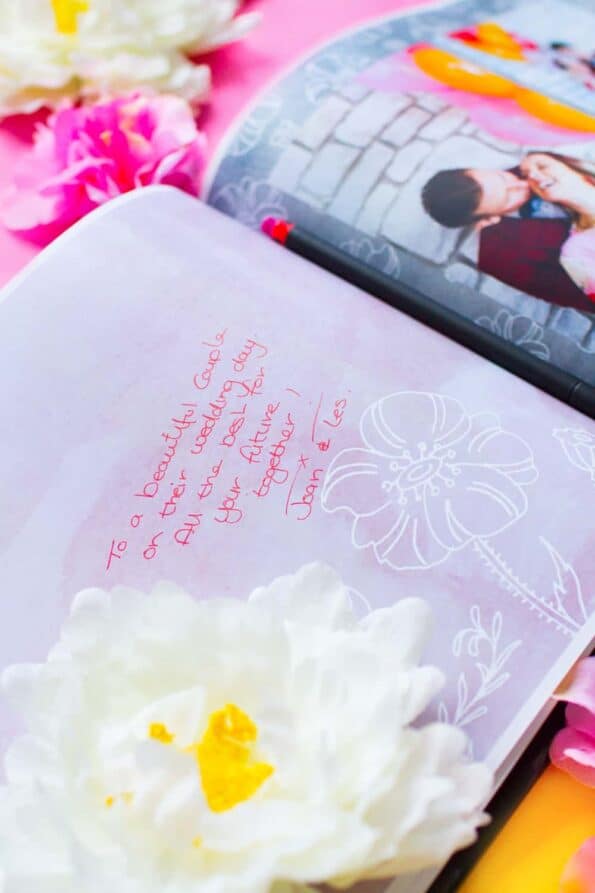 To a beautiful Couple
on their wedding day.
All the best for
your future
together!
x
Joan & Les.